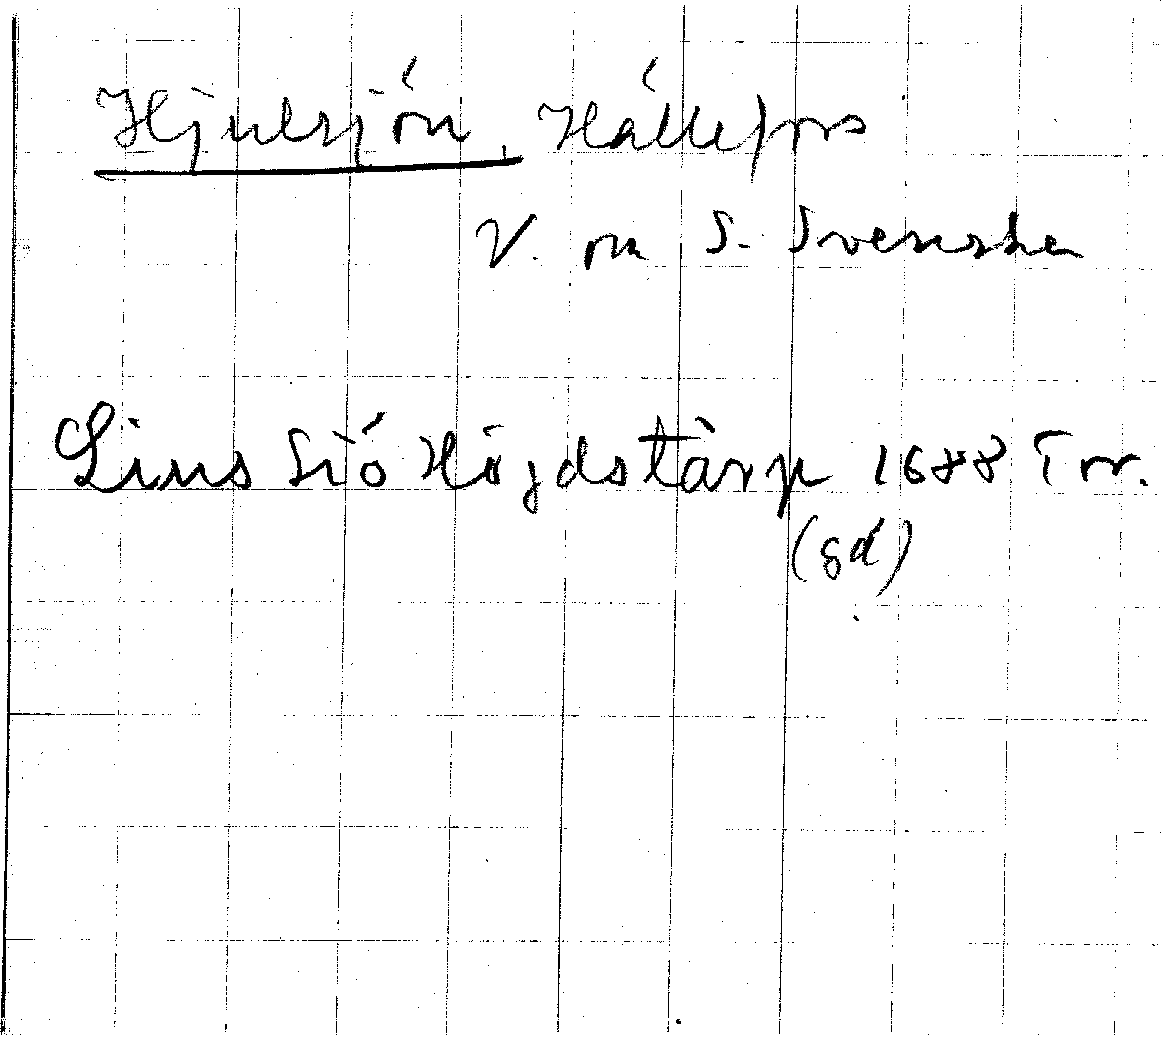 Hjulsjön, Hällefors
V. om S. Svensken
Lius Siö Höjdstärp 1688 Tr.
(gd)